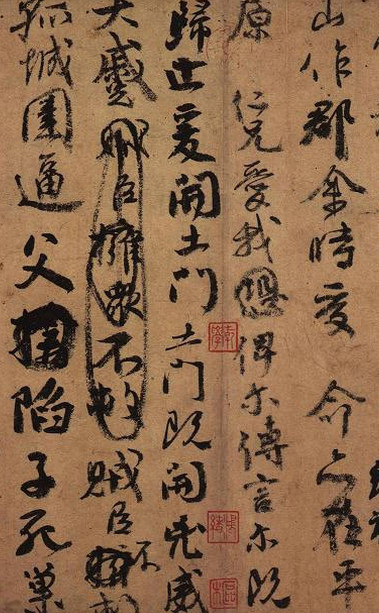 山作郡余時受命亦在平
原仁兄愛我俾尔傳言尔既
歸止爰開土門土門既開兇威
大蹙賊臣擁衆不救賊臣不
孤城圍逼父陷子死巢